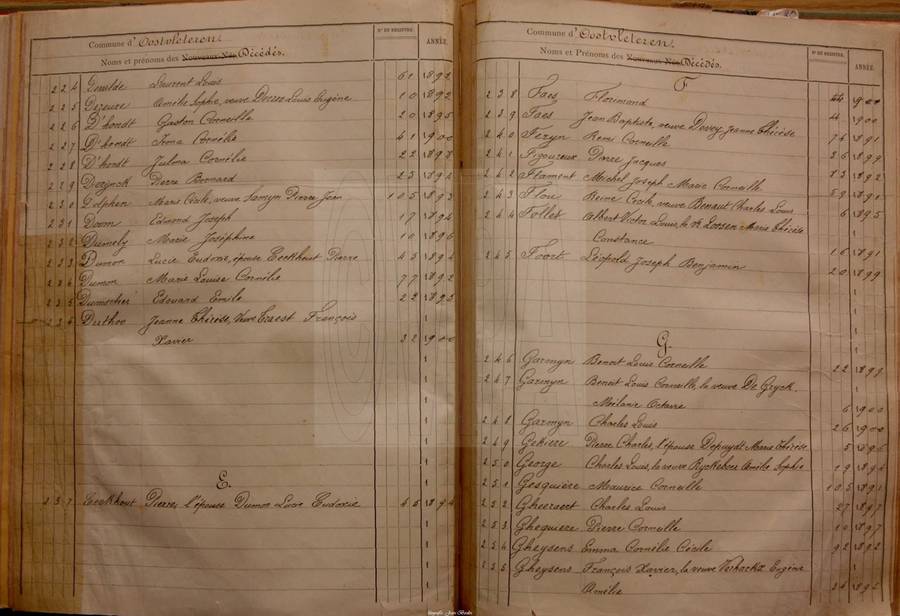 Commune d'Oostvleteren.
Noms et prénoms des Nouveaux-Nés Décédés.
N° DU REGISTRE.
ANNÉE.
224 Dewilde Laurent Louis 61 1892
225 Dezeure Amélie Sophie, veuve Louis Eugène 10 1892
226 D'hondt Gaston Corneille 20 1895
227 D'hondt Irma Cornélie 41 1900
228 D'hondt Julma Cornélie 22 1898
229 Pierre Bernard 23 1894
230 Dolphen Marie Cécile, veuve Samyn Pierre Jean 105 1893
231 Doom Edmond Joseph 17 1894
232 Dumely Marie Joséphine 10 1896
233 Dumon Lucie Eudoxie, épouse Eeckhout Pierre 43 1894
234 Dumon Marie Louise Cornélie 77 1892
235 Edouard Emile 22 1895
236 Duthoo Jeanne Thérèse, Veuve François
Xavier 32 1900
E.
237 Eeckhout Pierre, l'épouse Dumon Lucie Eudoxie 45 1894
Commune d'Oostvleteren.
Noms et Prénoms des Nouveaux-Nés Décédés.
N° DU REGISTRE.
ANNÉE.
F
238 Faes Florimond 44 1900
239 Faes Jean Baptiste, veuve Jeanne Thérèse 4 1900
240 Feryn Remi Corneille 76 1891
241 Figoureux Pierre Jacques 26 1899
242 Flament Michel Joseph Marie Corneille 83 1892
243 Flou Reine Cécile, veuve Benaut Charles Louis 59 1891
244 Follet Albert Victor Louis, le Vf Loosen Marie Thérèse 6 1895
Constance 16 1891
245 Foort Léopold Joseph Benjamin 20 1899
G.
246 Garmyn Benoit Louis Corneille 22 1899
247 Garmyn Benoit Louis Corneille, la veuve De Gryck
Mélanie Octavie 6 1900
248 Garmyn Charles Louis 26 1900
249 Gekiere Pierre Charles, l'épouse Depuydt Marie Thérèse 5 1896
250 George Charles Louis, la veuve Ryckeboer Amélie Sophie 19 1894
251 Gesquière Maurice Corneille 105 1891
252 Gheeraert Charles Louis 27 1897
253 Ghequiere Pierre Corneille 10 1897
254 Gheysens Emma Cornélie Cécile 92 1892
255 Gheysens François Xavier, la veuve Eugène
Amélie 34 1895